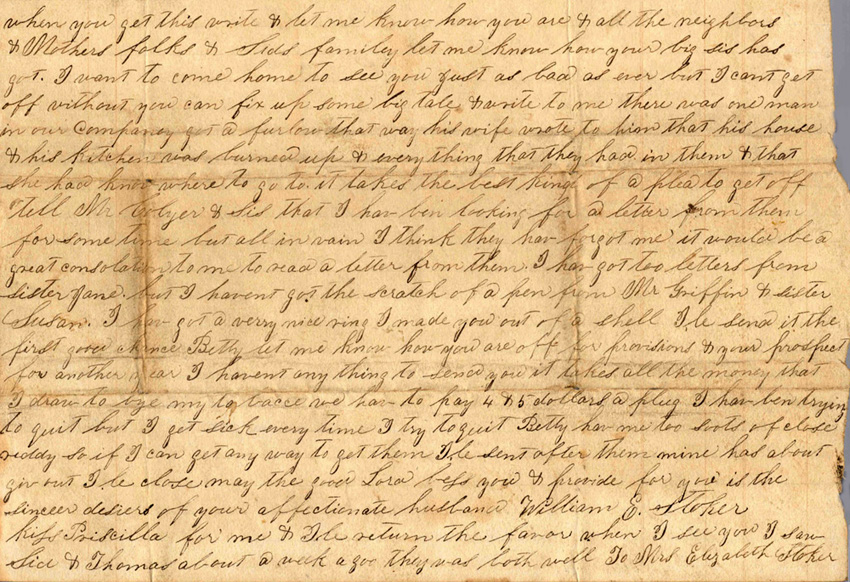 when you get this write & let me know how you are & all the neighbors
& Mothers folks & Sids family let me know how your big sis has
got. I want to come home to see you just as bad as ever but I cant get
off without you can fix up some big tale & write to me there was one man
in our Company got a furlow that way his wife wrote to him that his house
& his kitchen was burned up & everything that they had in them & that
she had know where to go to it takes the best kind of a plea to get off
Tell Mr Colyer & Sis that I hav ben looking for a letter from them
for some time but all in vain I think they hav forgot me it would be a
great consolation to me to read a letter from them. I hav got too letters from
sister Jane. but I havent got the scratch of a pen from Mr Griffin & sister
Susan. I hav got a verry nice ring I made you out of a shell Ile send it the
first good chance Betty let me know how you are off for provisions & your prospect
for another year I havent any thing to send you it takes all the money that
I draw to bye my to bacco we hav to pay 4 & 5 dollars a plug I hav ben tryin
to quit but I get sick every time I try to quit Betty hav me too soots of close
reddy so if I can get any way to get them Ile sent after them mine has about
giv out Ile close may the good Lord bess you & provide for you is the
sinceer desiers of your affectionate husband William E. Stoker
kiss Priscilla for me & Ile return the favor when I see you I saw
Sid & Thomas about a week a goe they was both well To Mrs Elizabeth Stoker